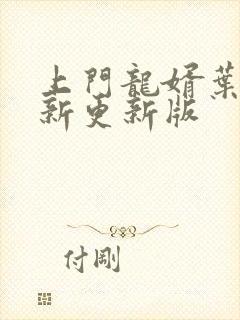 上門龍婿葉
新更新版
付剛